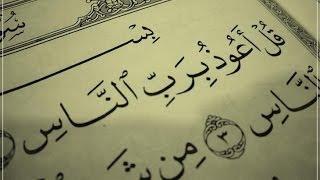 سُو
بِسْـ
قُلْ أَعُوذُ بِرَبِّ ٱلنَّاسِ
ٱلنَّاسِ ٣ مِن شَـ